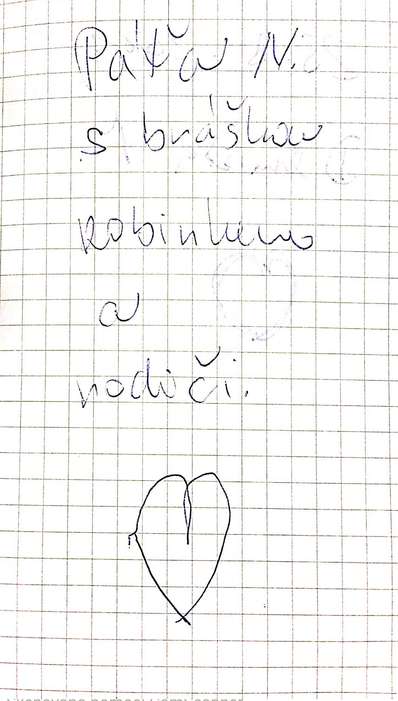 Páťa N.
s bráškou
Robinkem
a
rodiči.